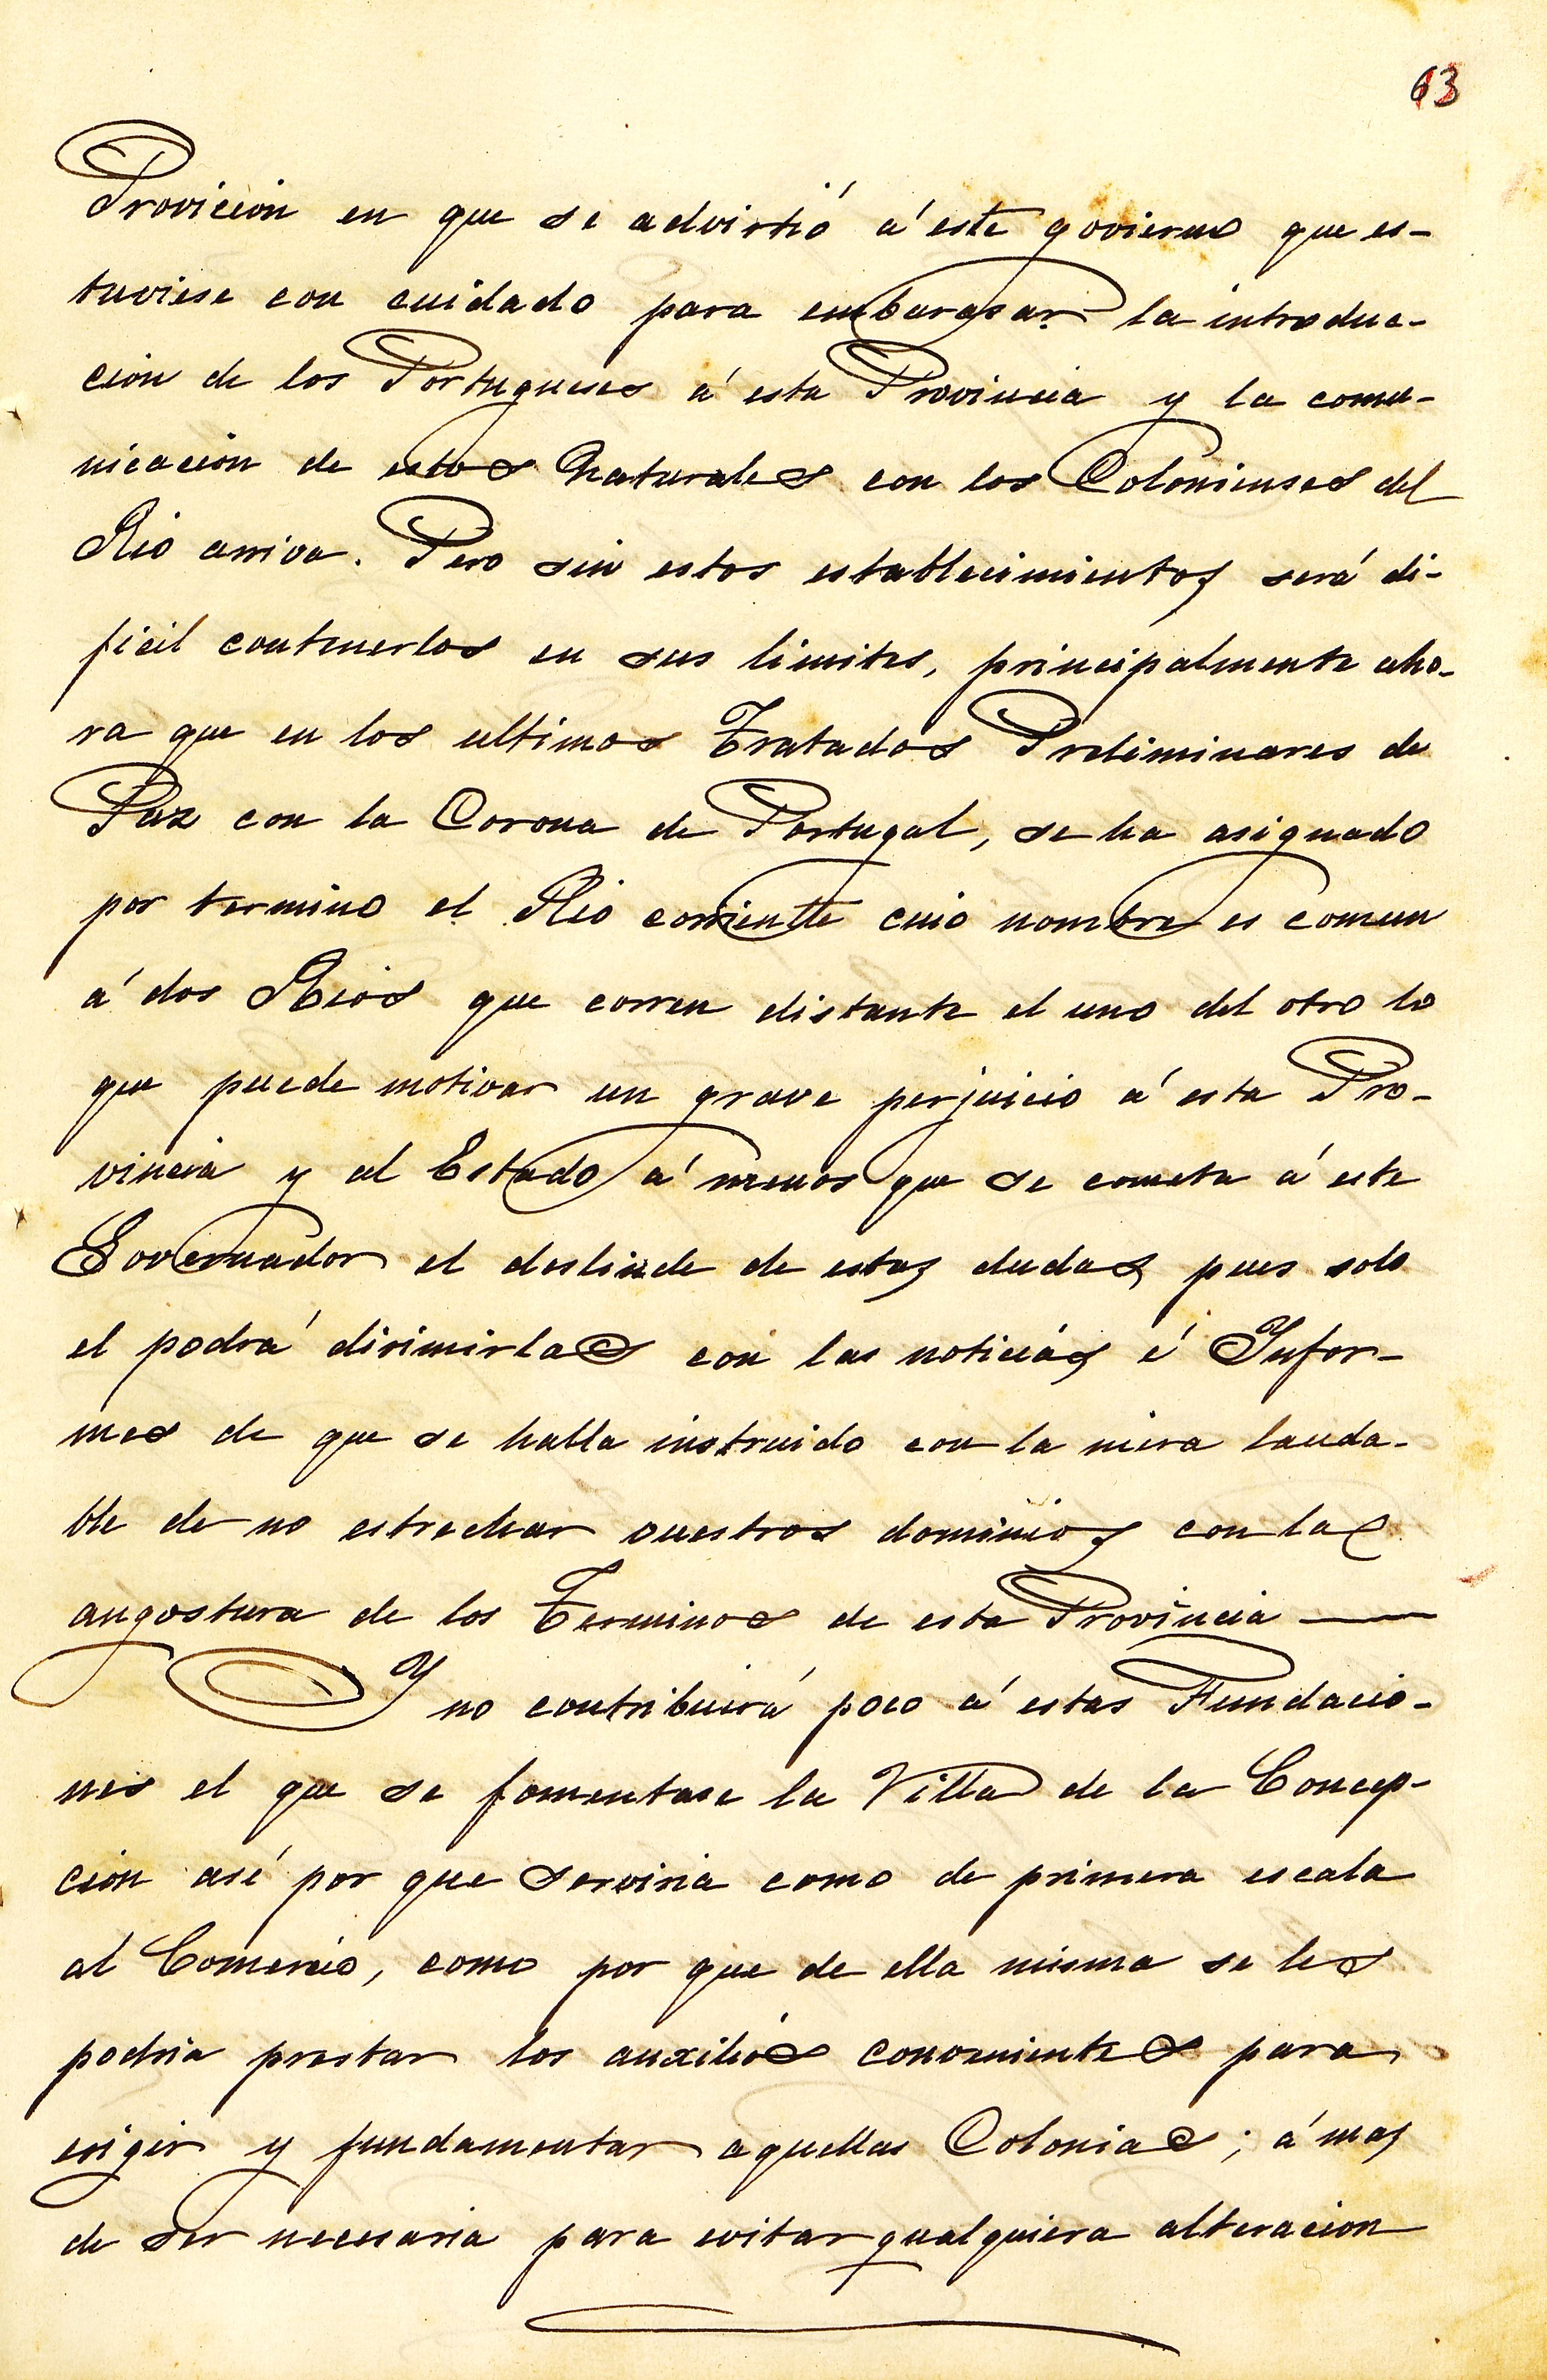 63
Provicion en que se advirtió á este govierno que es-
tuviese con cuidado para embarasar la introduc-
cion de los Portugueses á esta Provincia y la comu-
nicacion de estos Naturales con los Colonienses del
Rio arriva. Pero sin estos establecimientos será di-
ficil contenerlos en sus limites, principalmente aho-
ra que en los ultimos Tratados Preliminares de
Paz con la Corona de Portugal, se ha asignado
por termino el Rio corriente cuio nombre es comun
á dos Rios que corren distante el uno del otro lo
que puede motivar un grave perjuicio á esta Pro-
vincia y al Estado á menos que se cometa á este
Governador el deslinde de estas dudas, pues solo
el podrá dirimirlas con las noticias é Infor-
mes de que se halla instruido con la mira lauda-
ble de no estrechar nuestros dominios con la
angostura de los Terminos de esta Provincia —
Y no contribuirá poco á estas Fundacio-
nes el que se fomentase la Villa de la Concep-
cion así por que serviria como de primera escala
al Comercio, como por que de ella misma se les
podria prestar los auxilios convenientes para
erigir y fundamentar aquellas Colonias; á mas
de ser necesaria para evitar qualquiera alteracion